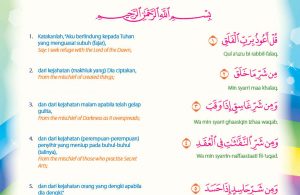 بِسْمِ اللَّهِ الرَّحْمَٰنِ الرَّحِيمِ
1. Katakanlah, "Aku berlindung kepada Tuhan
yang menguasai subuh (fajar),
Say: I seek refuge with the Lord of the Dawn,
قُلْ أَعُوذُ بِرَبِّ الْفَلَقِ ۝١
Qul a'uzu bi rabbil-falaq.
2. dari kejahatan (makhluk yang) Dia ciptakan,
from the mischief of created things;
مِن شَرِّ مَا خَلَقَ ۝٢
Min syarri maa khalaq.
3. dan dari kejahatan malam apabila telah gelap
gulita,
from the mischief of Darkness as it overspreads;
وَمِن شَرِّ غَاسِقٍ إِذَا وَقَبَ ۝٣
Wa min syarri ghaasiqin izhaa waqab.
4. dan dari kejahatan (perempuan-perempuan)
penyihir yang meniup pada buhul-buhul
(talinya),
from the mischief of those who practise Secret
Arts;
وَمِن شَرِّ النَّفَّاثَاتِ فِي الْعُقَدِ ۝٤
Wa min syarrin-naffaastaati fil-'uqad.
5. dan dari kejahatan orang yang dengki apabila
dia dengki."
وَمِن شَرِّ حَاسِدٍ إِذَا حَسَدَ